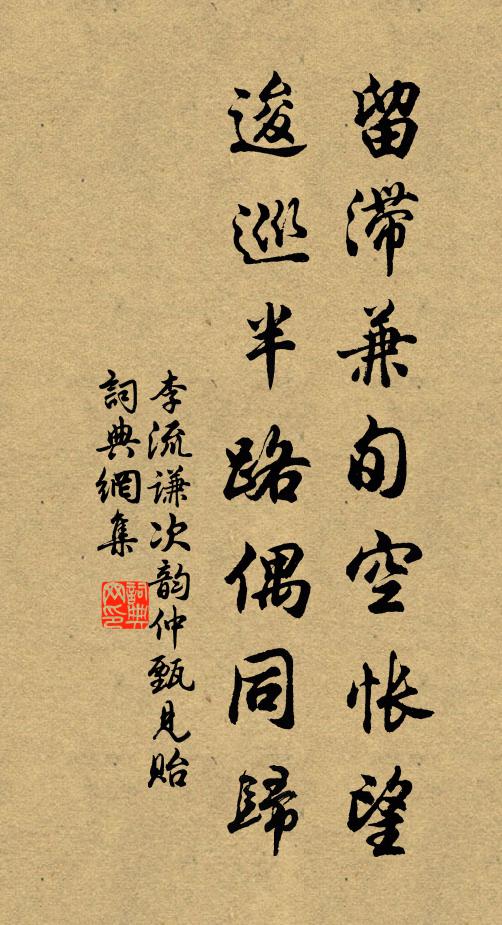 留滯兼旬空悵望
逡巡半路偶同歸
李流謙次韵仲甄見貽
詞典網集
詞典网印